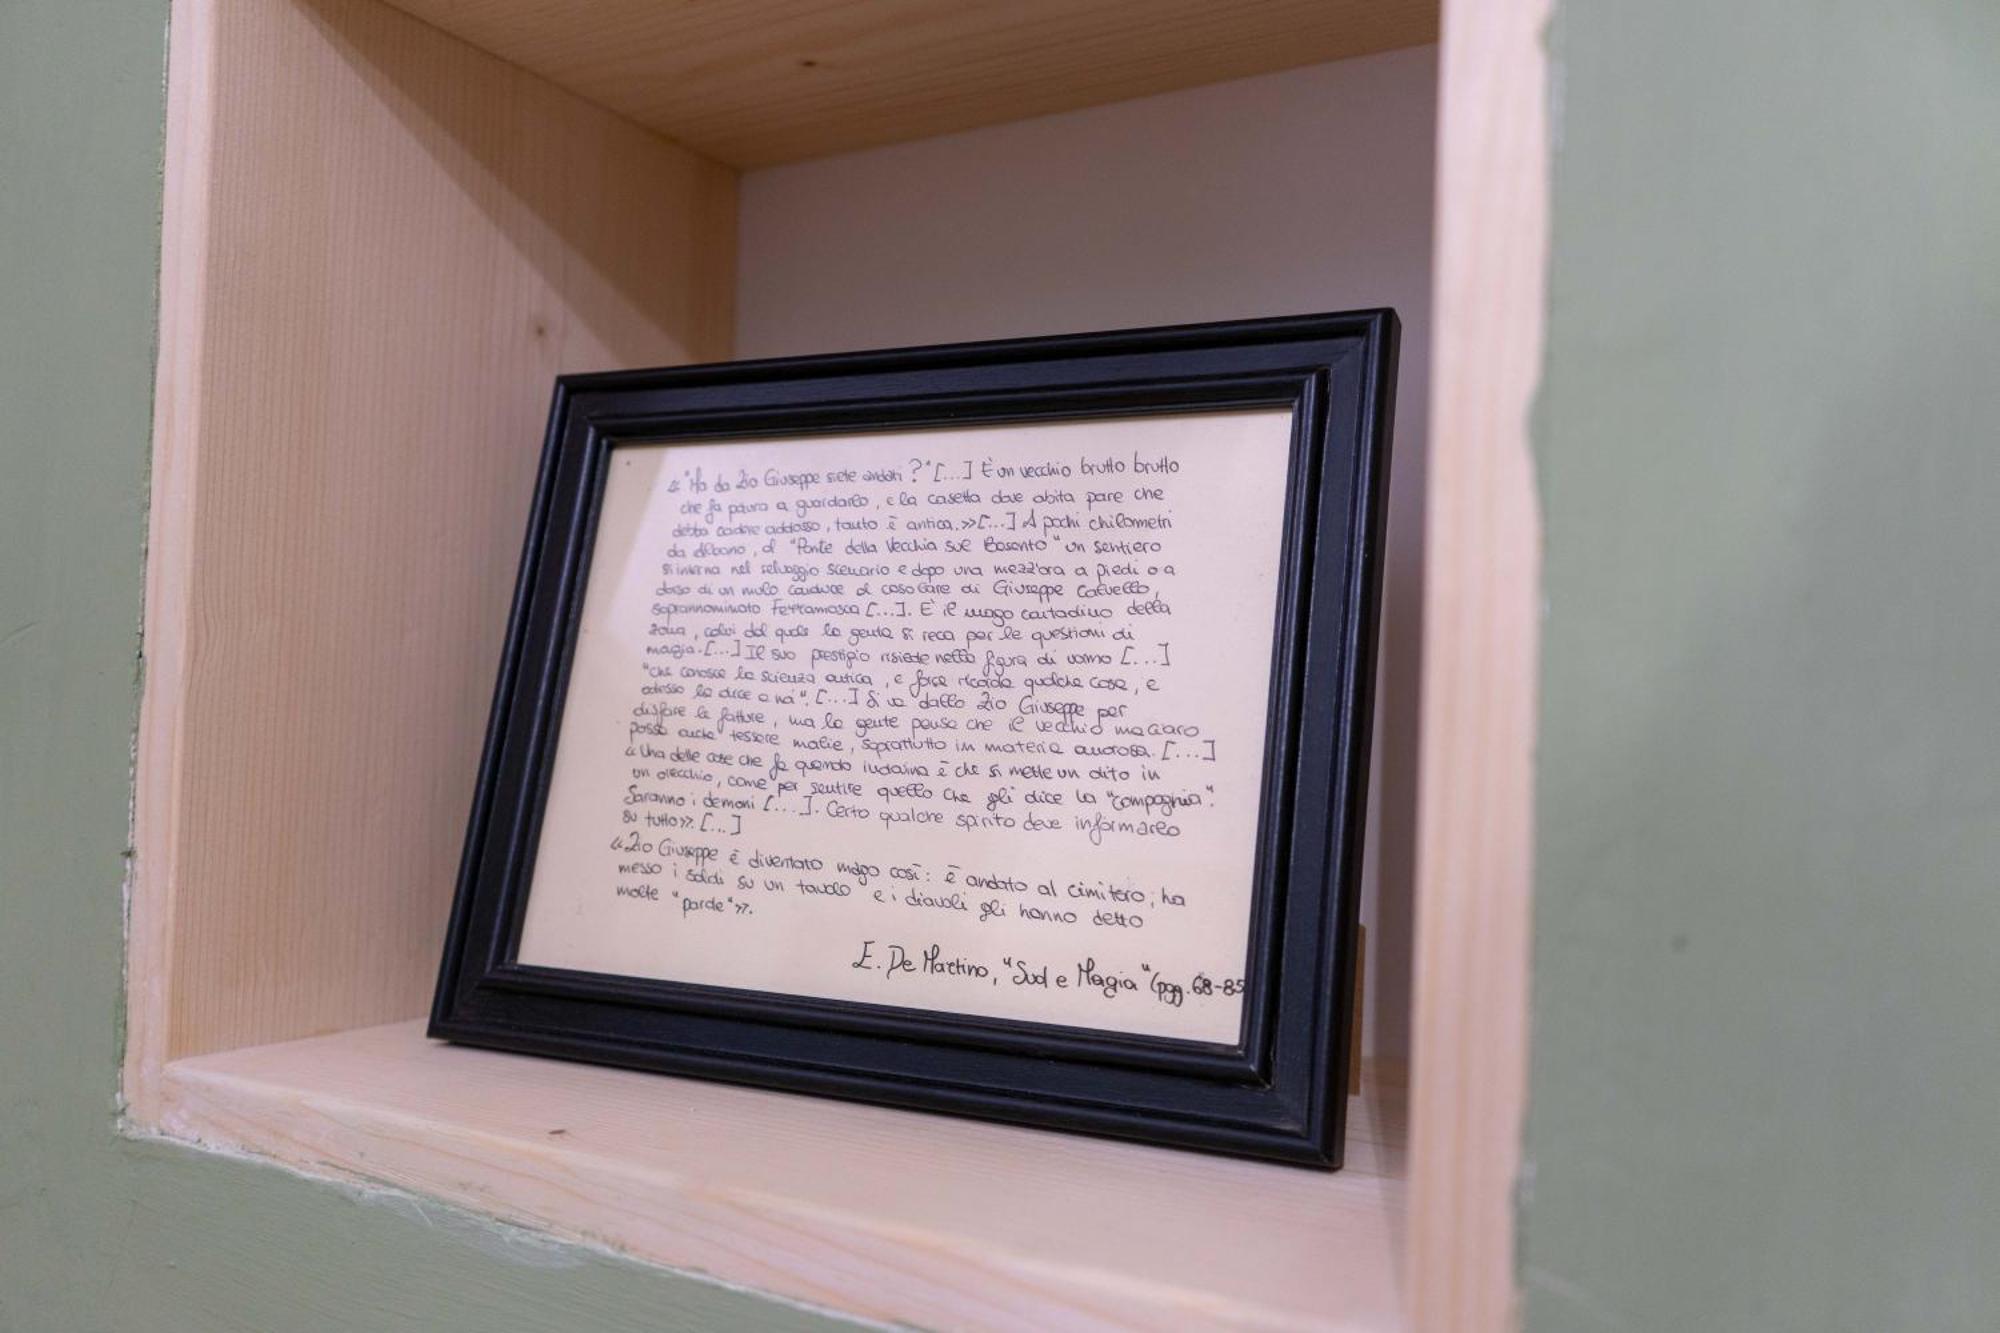 « "Ma da Zio Giuseppe siete andati?" [...] È un vecchio brutto brutto
che fa paura a guardarlo, e la casetta dove abita pare che
debba cadere addosso, tanto è antica.» [...] A pochi chilometri
da Albano, al "Ponte della Vecchia sul Basento" un sentiero
si interna nel selvaggio scenario e dopo una mezz'ora a piedi o a
dosso di un mulo conduce al casolare di Giuseppe Calvello,
soprannominato Ferramosca [...]. È il mago contadino della
zona, colui dal quale la gente si reca per le questioni di
magia. [...] Il suo prestigio risiede nella figura di uomo [...]
"che conosce la scienza antica, e forse ricorda qualche cosa, e
adesso la dice a nui". [...] Si va dallo Zio Giuseppe per
disfare le fatture, ma la gente pensa che il vecchio maciaro
possa anche tessere malie, soprattutto in materia amorosa. [...]
« Una delle cose che fa quando indovina è che si mette un dito in
un orecchio, come per sentire quello che gli dice la "compagnia".
Saranno i demoni [...]. Certo qualche spirito deve informarlo
su tutto». [...]
« Zio Giuseppe è diventato mago così: è andato al cimitero, ha
messo i soldi su un tavolo e i diavoli gli hanno detto
molte "parole"».
E. De Martino, "Sud e Magia" (pgg. 68-85